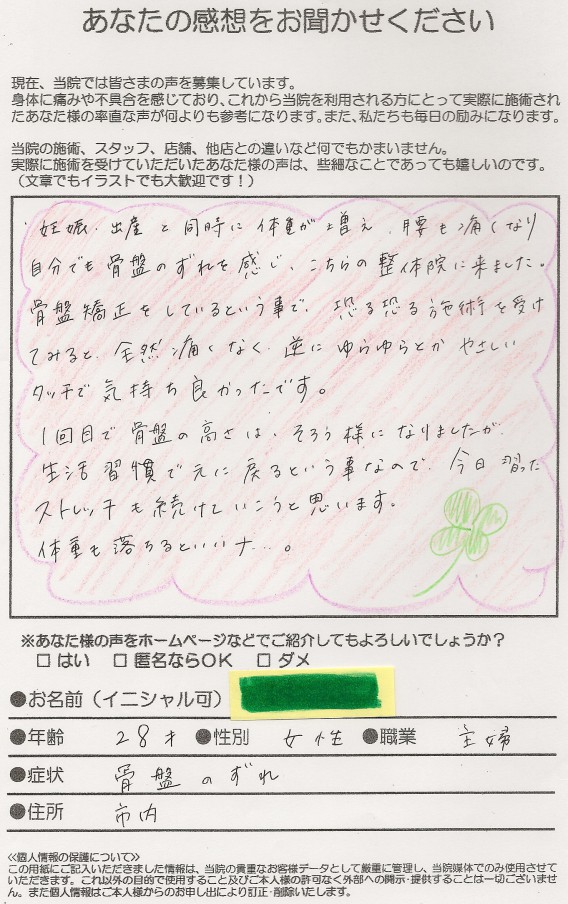 あなたの感想をお聞かせください
現在、当院では皆さまの声を募集しています。
身体に痛みや不具合を感じており、これから当院を利用される方にとって実際に施術され
たあなた様の率直な声が何よりも参考になります。また、私たちも毎日の励みになります。
当院の施術、スタッフ、店舗、他店との違いなど何でもかまいません。
実際に施術を受けていただいたあなた様の声は、些細なことであっても嬉しいのです。
（文章でもイラストでも大歓迎です！）
妊娠・出産と同時に体重が増え、腰も痛くなり
自分でも骨盤のずれを感じ、こちらの整体院に来ました。
骨盤矯正をしているという事で、恐る恐る施術を受け
てみると、全然痛くなく、逆にゆらゆらとか やさしい
タッチで気持ち良かったです。
1回目で骨盤の高さは、そろう様になりましたが、
生活習慣で元に戻るという事なので、今日習った
ストレッチも続けていこうと思います。
体重も落ちるといいナ…。
※あなた様の声をホームページなどでご紹介してもよろしいでしょうか？
□ はい □ 匿名ならOK □ ダメ
●お名前（イニシャル可）
●年齢 28才 ●性別 女性 ●職業 主婦
●症状 骨盤のずれ
●住所 市内
≪個人情報の保護について≫
この用紙にご記入いただきました情報は、当院の貴重なお客様データとして厳重に管理し、当院媒体でのみ使用させて
いただきます。これ以外の目的で使用すること及びご本人様の許可なく外部への開示・提供することは一切ございませ
ん。また個人情報はご本人様からのお申し出により訂正・削除いたします。